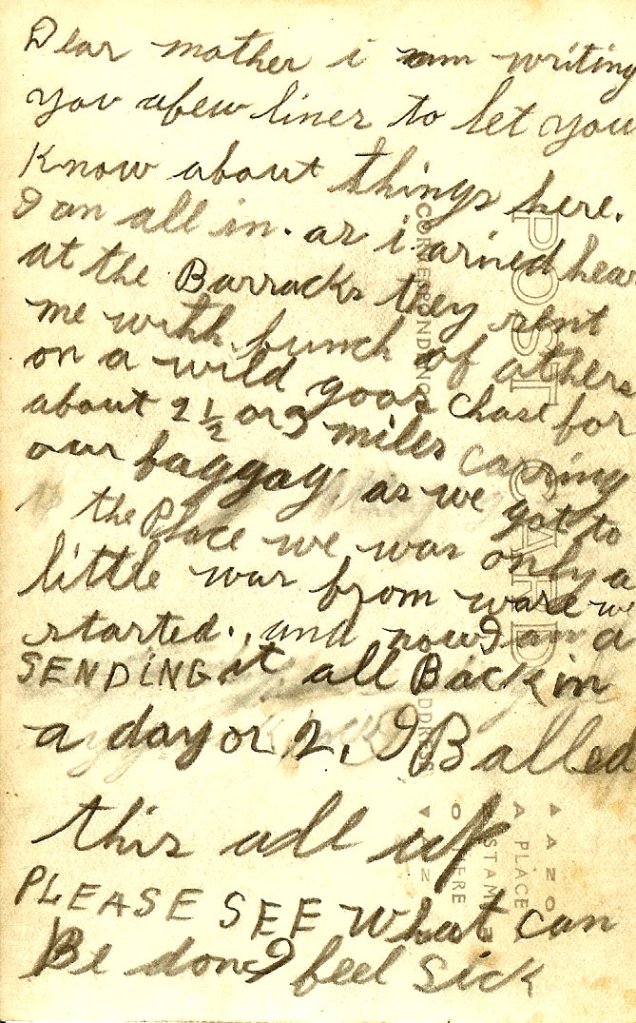 Dear mother i am writing
you afew lines to let you
Know about things here.
I an all in. as i arived hear
at the Barracks they sent
me withh bunch of athers
on a wild goos chase for
about 2 1/2 or 3 miles carring
our baggag as we got to
the Place we was only a
little war from ware we
started., and now I am a
SENDiNG it all Back in
a day or 2, I Balled
this all up
PLEASE SEE what can
Be done I feel Sick
POST CARD
CORRESPONDING
ADDRESS
AZO
PLACE
STAMP
HERE